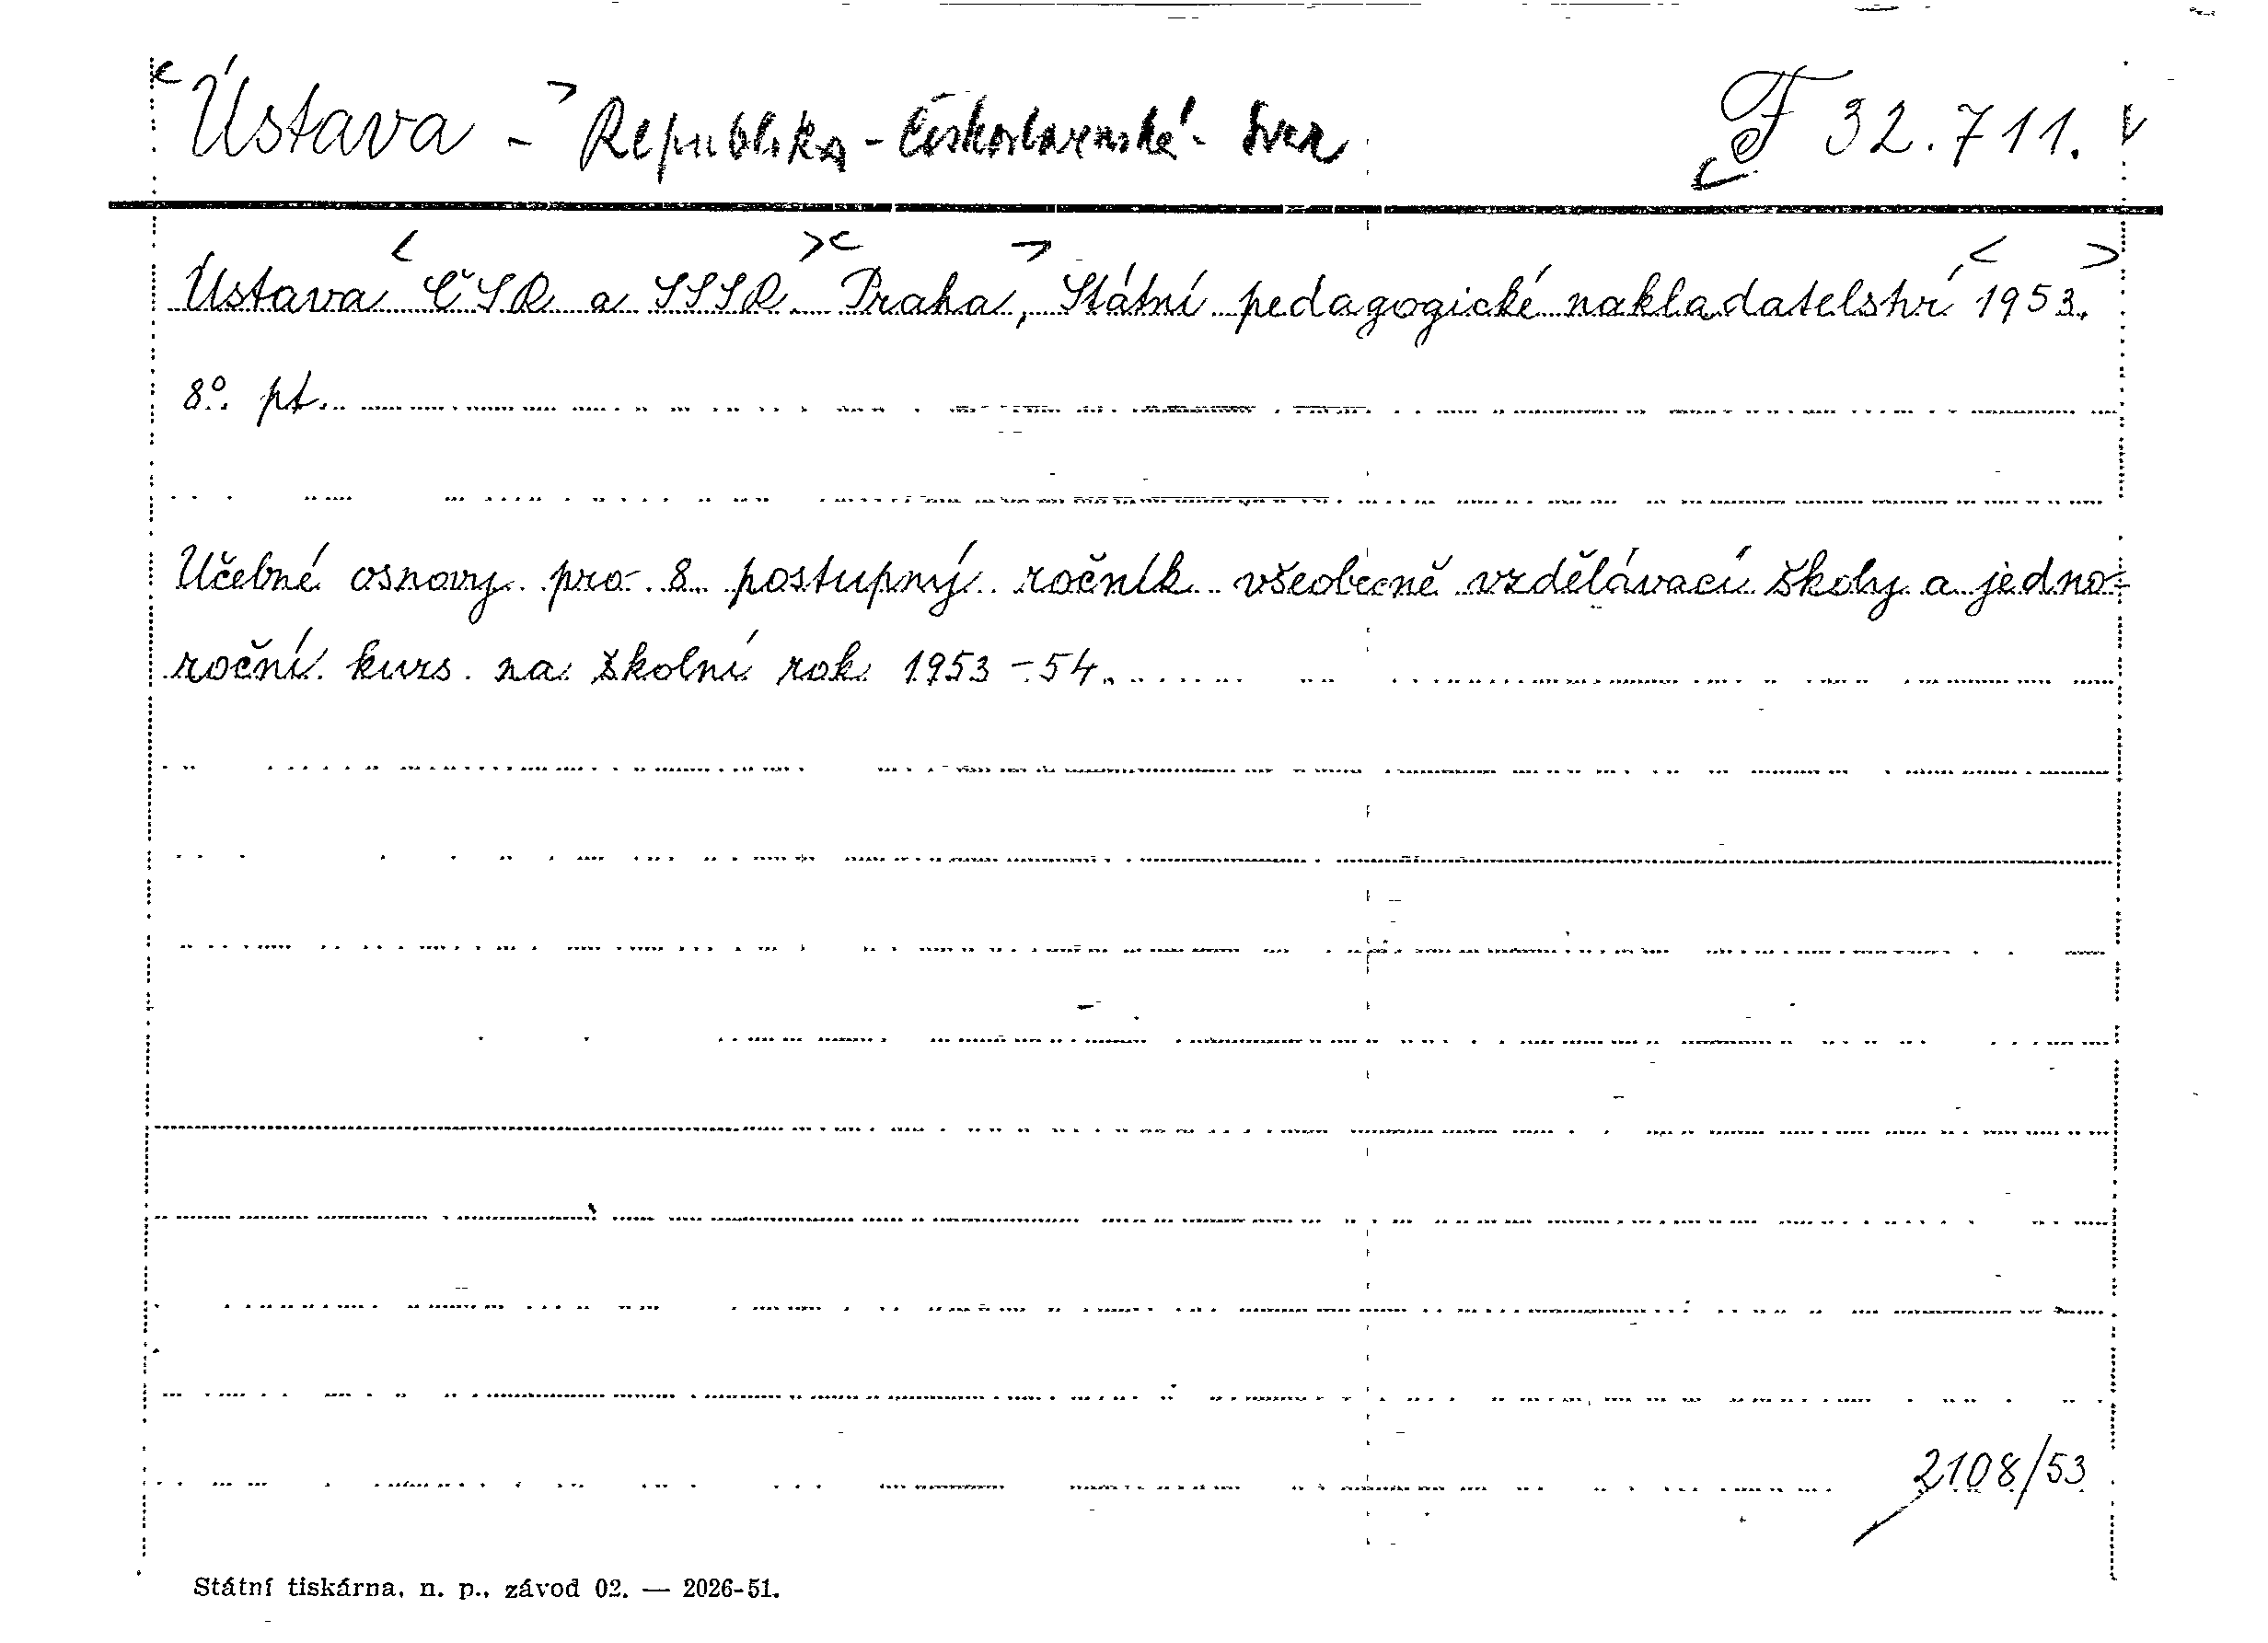 Ústava - Republika - Československá - Svaz
F 32.711.
Ústava ČSR a SSSR. Praha, Státní pedagogické nakladatelství 1953.
8°. pt.
Učebné osnovy pro 8. postupný ročník všeobecně vzdělávací školy a jedno-
roční kurs na školní rok 1953-54.
2108/53
Státní tiskárna, n. p., závod 02. — 2026-51.